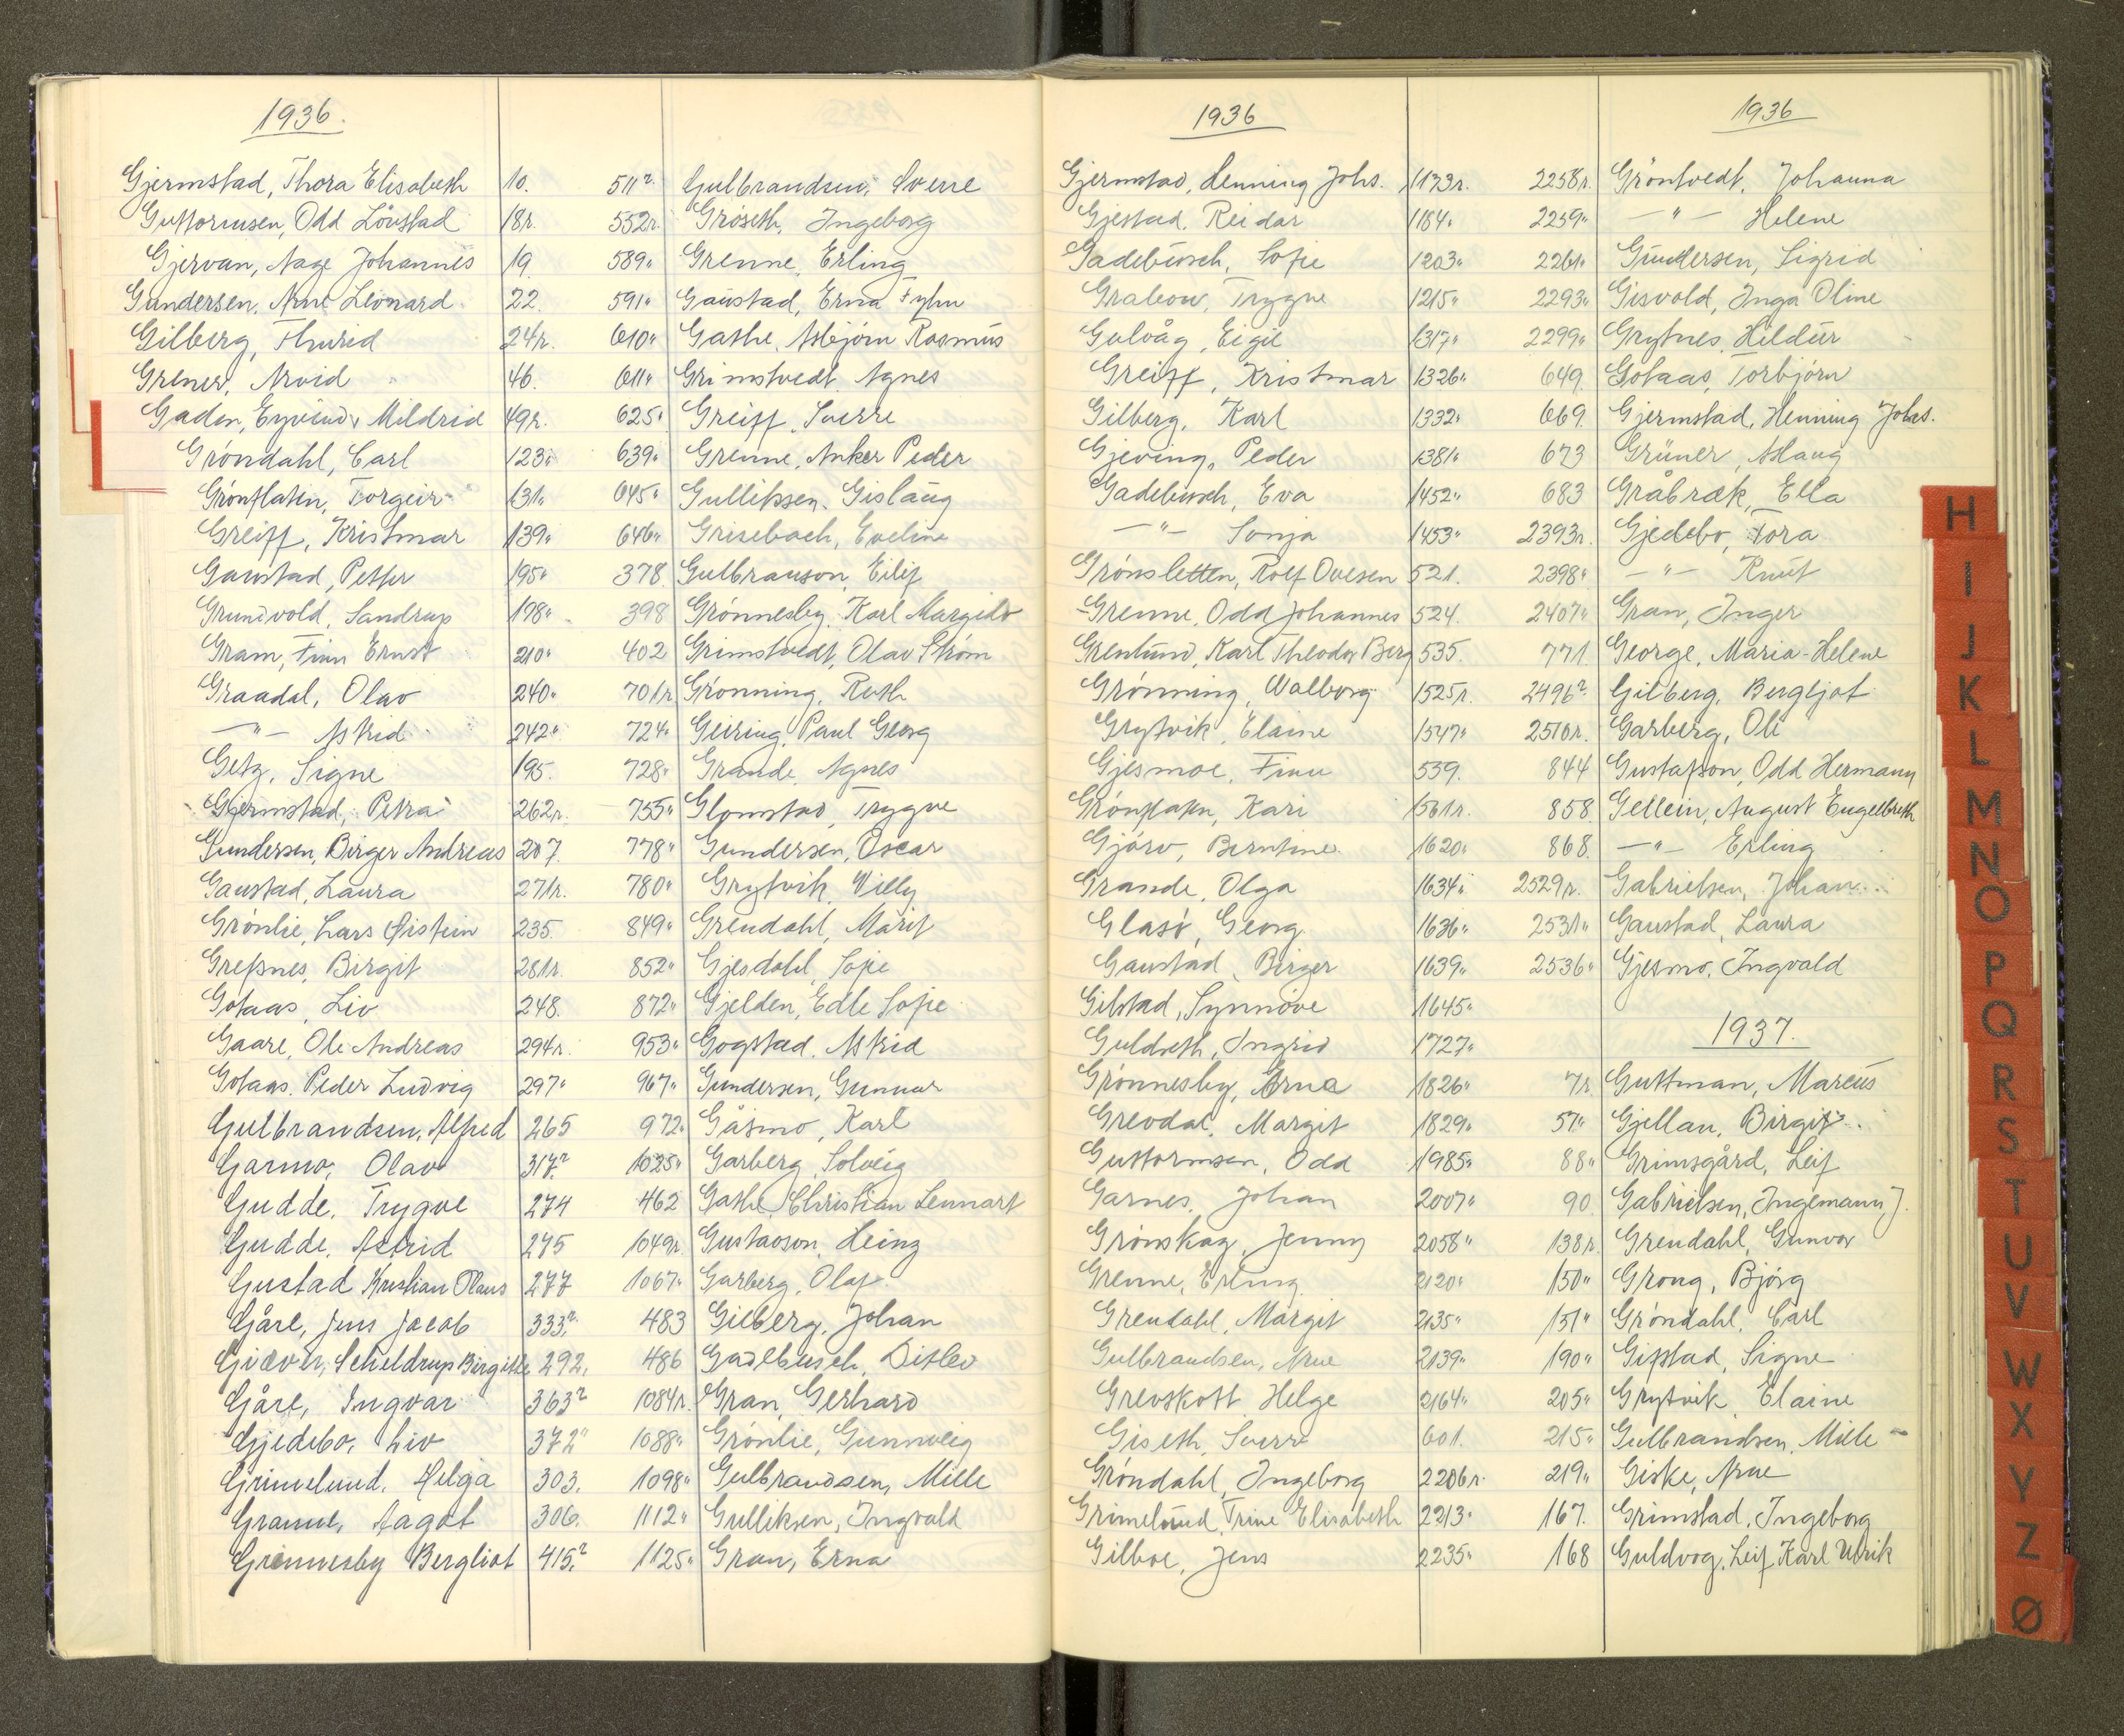 1936.
Gjermstad, Thora Elisabeth 10.
Guttormsen, Odd Lövstad 18r.
Gjervan, Aage Johannes 19.
Gundersen, Arne Leonard 22.
Gilberg, Thurid 24r.
Grener, Arvid 46.
Gaden, Eyvind, Mildrid 49r.
Gröndahl, Carl 123"
Grönflaten, Torgeir 131"
Greiff, Kristmar 139"
Gaustad, Petter 195"
Grundvold, Sandrup 198"
Gram, Finn Ernst 210"
Graadal, Olav 240"
—"— Astrid 242"
Getz, Signe 195.
Gjermstad, Petra 262r.
Gundersen, Birger Andreas 207.
Gaustad, Laura 271r.
Grönlie, Lars Øistein 235.
Grefsnes, Birgit 281r.
Gotaas, Liv 248.
Gaare, Ole Andreas 294r.
Gotaas, Peder Ludvig 297"
Gulbrandsen, Alfred 265
Garmo, Olav 317r
Gudde, Trygve 274
Gudde, Astrid 275
Gustad Kristian Olaus 277
Gåre, Jens Jacob 333r.
Giæver, Scheldrup Birgitte 292.
Gåre, Ingvar 363r
Gjedebo, Liv 372"
Grimelund, Helga 303.
Gramm, Aagot 306.
Grönnesby Bergliot 415r
511r Gulbrandsen, Sverre
552r. Gröseth, Ingeborg
589" Grenne, Erling
591" Gaustad, Erna Fyhn
610" Gathe, Asbjörn Rasmus
611" Grimstvedt, Agnes
625" Greiff, Sverre
639" Grenne, Anker Peder
645" Gulliksen, Gislaug
646" Grisebach, Eveline
378 Gulbranson, Eilif
398 Grönnesby, Karl Margido
402 Grimstvedt, Olav Ström
701r Grönning, Ruth
724" Geiring, Paul Georg
728" Grande, Agnes
755" Glomstad, Trygve
778" Gundersen, Oscar
780" Grytvik, Willy
849" Grendahl, Marit
852" Gjesdahl, Sofie
872" Gjelden, Edle Sofie
953" Gogstad, Astrid
967" Gundersen, Gunnar
972" Gåsmo, Karl
1025" Garberg, Solveig
462 Gathe, Christian Lennart
1049r. Gustavson, Heinz
1067" Garberg, Olaf
483 Gilberg, Johan
486 Gadebusch, Ditlev
1084r. Gran, Gerhard
1088" Grönlie, Gunnveig
1098" Gulbrandsen, Mille
1112" Gulliksen, Ingvald
1125" Gran, Erna
1936
Gjermstad, Henning Johs. 1173r.
Gjestad, Reidar 1184"
Gadebusch, Sofie 1203"
Grabow, Trygve 1215"
Gulvåg, Eigil 1317"
Greiff, Kristmar 1326"
Gilberg, Karl 1332"
Gjeving, Peder 1381"
Gadebusch, Eva 1452"
—"— Sonja 1453"
Grönsletten, Rolf Ovesen 521.
Grenne, Odd Johannes 524.
Grenlund, Karl Theodor Berg 535.
Grönning, Walborg 1525r.
Grytvik, Elaine 1547"
Gjesmoe, Finn 539.
Grönflaten, Kari 1561r.
Gjörv, Berntine 1620"
Grande, Olga 1634"
Glasö, Georg 1636"
Gaustad, Birger 1639"
Gilstad, Synnöve 1645"
Guldseth, Ingrid 1727"
Grönnesby, Arna 1826"
Grevdal, Margit 1829"
Guttormsen, Odd 1985"
Garnes, Johan 2007"
Grönskag, Jenny 2058"
Grenne, Erling 2120"
Grendahl, Margit 2135"
Gulbrandsen, Arne 2139"
Grevskott Helge 2164"
Giseth, Sverre 601.
Gröndahl, Ingeborg 2206r.
Grimelund, Trine Elisabeth 2213"
Gilboe, Jens 2235"
1936
2258r. Gröntvedt, Johanna
2259" —"— Helene
2261" Gundersen, Sigrid
2293" Gisvold, Inga Oline
2299" Grytnes, Hildur
649. Gotaas, Torbjörn
669. Gjermstad, Henning Johs.
673 Grüner, Aslaug
683 Gråbræk, Ella
2393r. Gjedebo, Tora
2398" —"— Knut
2407" Gran, Inger
771. George, Maria-Helene
2496r Gilberg, Bergljot
2510r. Garberg, Ole
844 Gustafson, Odd Hermann
858. Gellein, August Engelbreth
868. —"— Erling
2529r. Gabrielsen, Johan
2531" Gaustad, Laura
2536" Gjesmo, Ingvald
1937.
7r. Guttman, Marcus
57" Gjellan, Birgit
88" Grimsgård, Leif
90. Gabrielsen, Ingemann J.
138r. Grendahl, Gunvor
150" Grong, Bjørg
151" Gröndahl, Carl
190" Gifstad, Signe
205" Grytvik, Elaine
215" Gulbrandsen, Mille
219" Giske, Arne
167. Grimstad, Ingeborg
168 Guldvog, Leif Karl Ulrik
H
I
J
K
L
M
N
O
P
Q
R
S
T
U
V
W
X
Y
Z
Ø